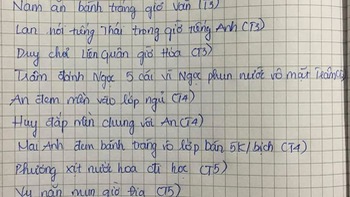 Nam ăn bánh tráng giờ Văn (T3)
Lan nói tiếng Thái trong giờ tiếng Anh (T3)
Duy chơi Liên Quân giờ Hóa (T3)
Trâm đánh Ngọc 5 cái vì Ngọc phun nước vô mặt Trâm
An đem mền vào lớp ngủ (T4)
Huy đắp mền chung với An (T4)
Mai Anh đem bánh tráng vô lớp bán 5K/bịch (T4)
Phương xịt nước hoa đi học (T5)
Vy nặn mụn giờ Địa (T5)